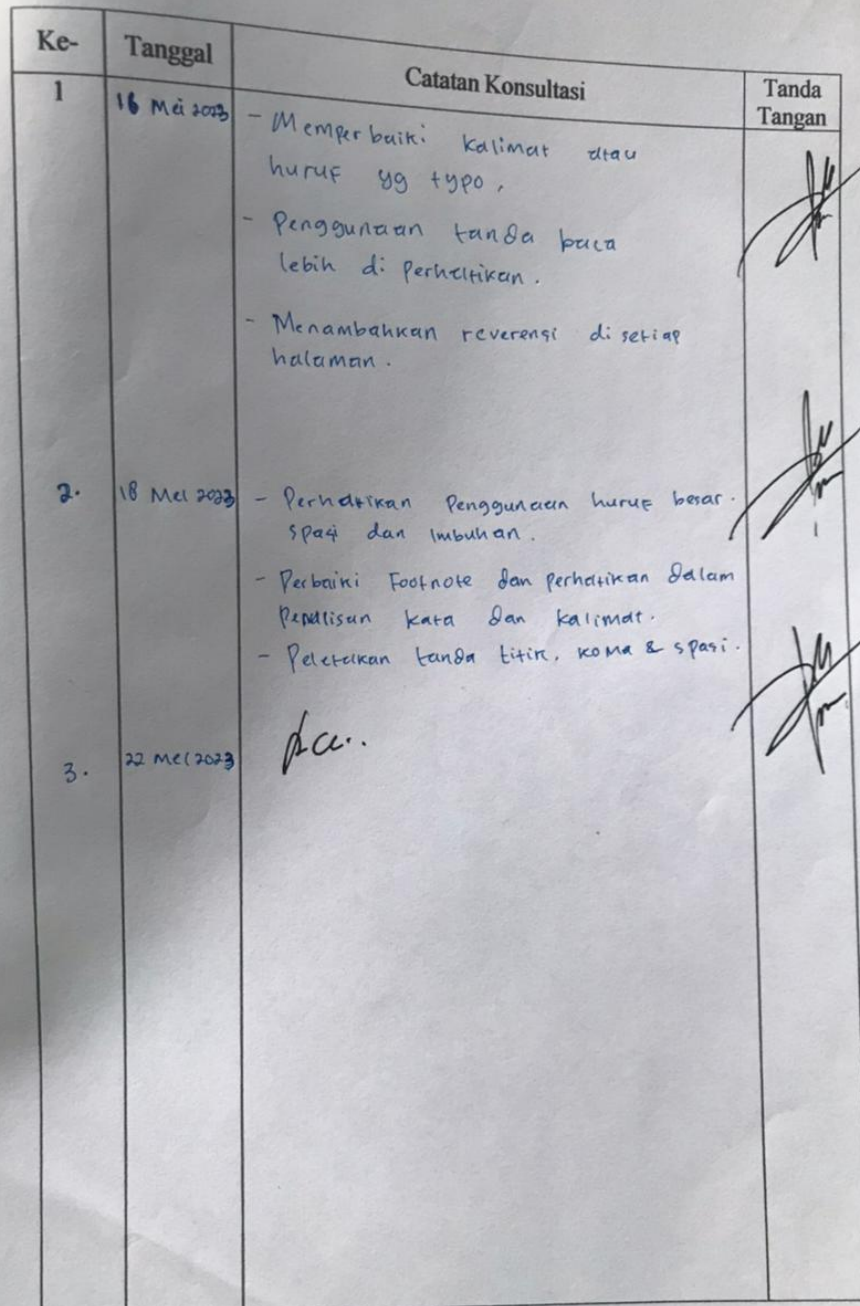 Ke- Tanggal Catatan Konsultasi Tanda Tangan
1 16 Mei 2023 - Memperbaiki kalimat atau
huruf yg typo,
- Penggunaan tanda baca
lebih di perhatikan.
- Menambahkan reverensi di setiap
halaman.
2. 18 Mei 2023 - Perhatikan Penggunaan huruf besar.
spasi dan Imbuhan.
- Perbaiki Footnote dan perhatikan dalam
Penulisan kata dan kalimat.
- Peletakan tanda titik, koma & spasi.
3. 22 Mei 2023